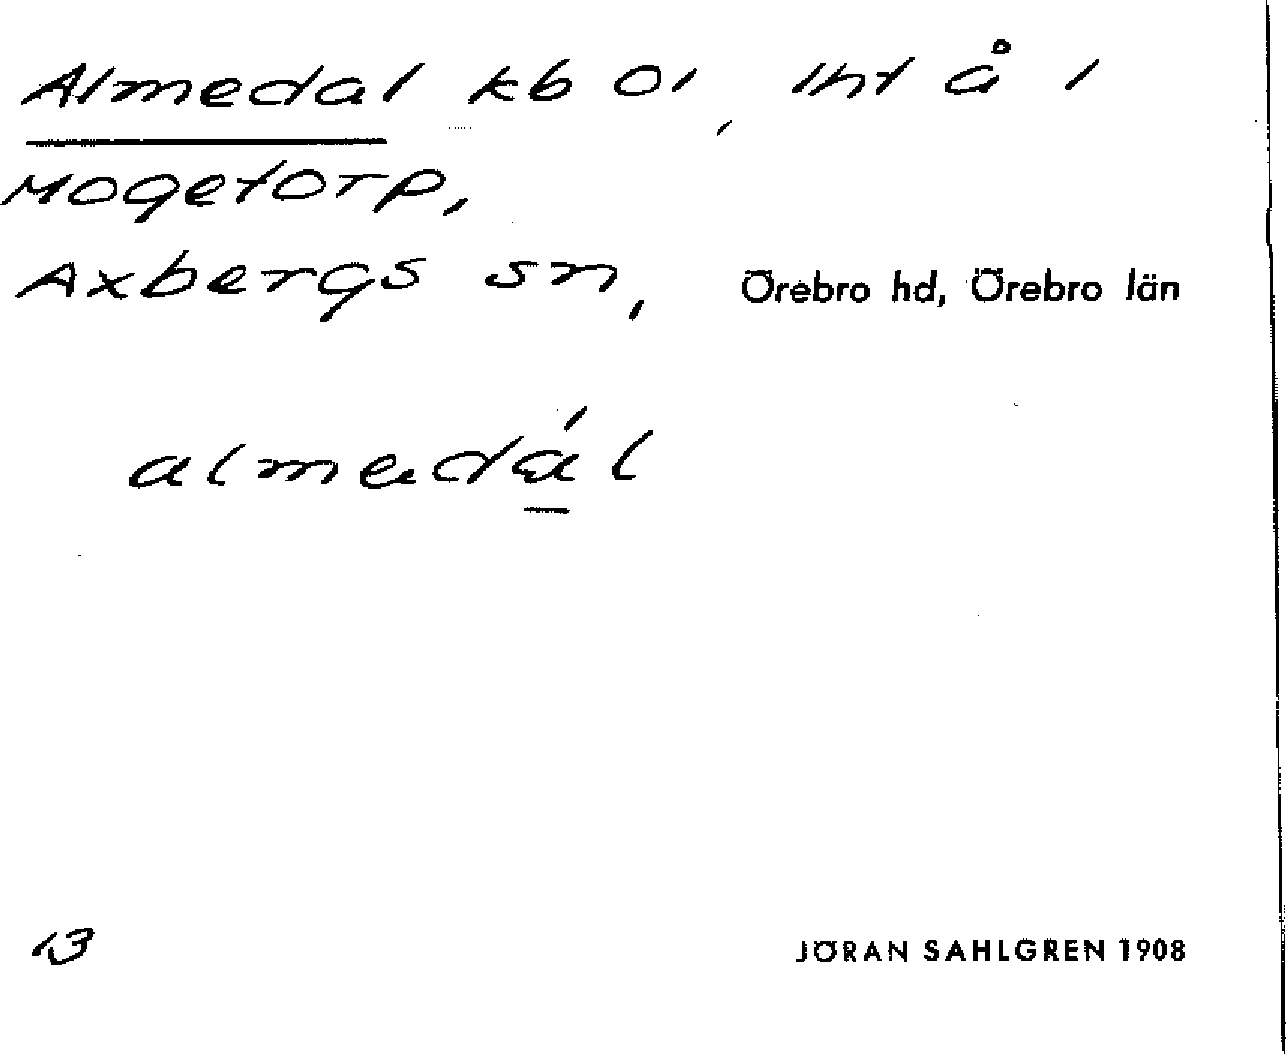 Almedal kb oi, int å 1
Mogetorp,
Axbergs sn, Örebro hd, Örebro län
almedá̱l
13 JÖRAN SAHLGREN 1908